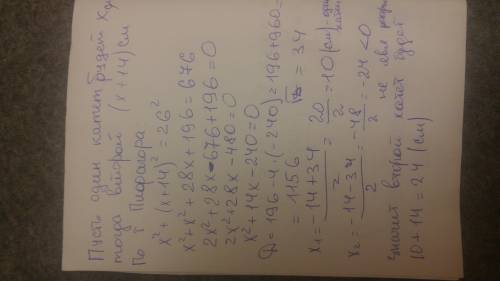 Пусть один катет будет x
тогда второй (x+14) см
По т Пифагора
x² + (x+14)² = 26²
x² + x² + 28x + 196 = 676
2x² + 28x - 676 + 196 = 0
2x² + 28x - 480 = 0
x² + 14x - 240 = 0
D = 196 - 4·(-240) = 196 + 960 =
= 1156 √D = 34
x₁ = (-14+34)/2 = 20/2 = 10 (см) - один катет
x₂ = (-14-34)/2 = -48/2 = -24 < 0
не явл
значит второй катет будет
10 + 14 = 24 (см)